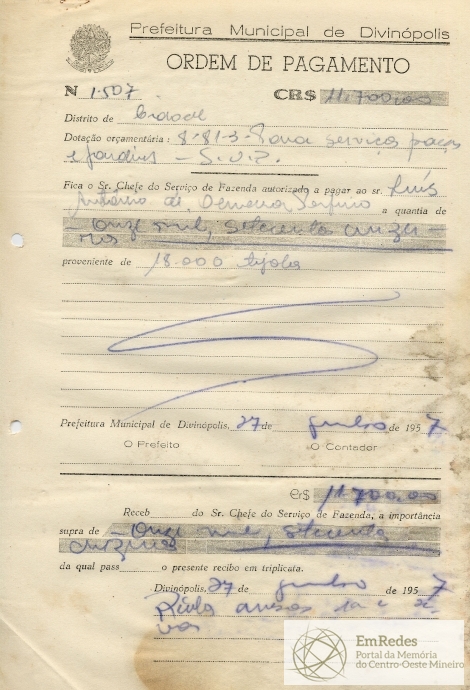 Prefeitura Municipal de Divinópolis
ORDEM DE PAGAMENTO
N 1.507 CR$ 11.700,00
Distrito de Cidade
Dotação orçamentária: 8-81-3- Para serviços
e jardins - S.U.P.
Fica o Sr. Chefe do Serviço de Fazenda autorizado a pagar ao sr. Luís
Antônio de a quantia de
onze mil, setecentos cruzei-
ros
proveniente de 18.000 tijolos
Prefeitura Municipal de Divinópolis, 27 de junho de 1957
O Prefeito O Contador
Cr$ 11.700,00
Receb do Sr. Chefe do Serviço de Fazenda, a importância
supra de - Onze mil, setecentos
cruzeiros
da qual pass o presente recibo em triplicata.
Divinópolis, 27 de junho de 1957
EmRedes
Portal da Memória
do Centro-Oeste Mineiro